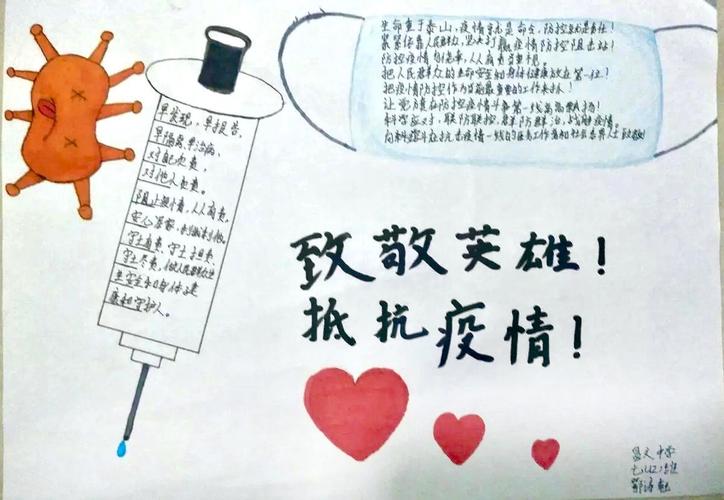 生命重于泰山，疫情就是命令，防控就是责任！
紧紧依靠人民群众，坚决打赢疫情防控阻击战！
防控疫情
把人民群众的生命安全和身体健康放在第一位！
把疫情防控作为当前最重要的工作来抓！
让党旗在防控疫情斗争第一线高高飘扬！
科学应对，联防联控，群防群治，战胜疫情！
向奋战在抗击疫情一线的医务工作者和社会各界人士致敬！
早发现，早报告，
早隔离，早治病、
对自己负责，
对他人负责。
阻止疫情，人人有责，
安心居家，
守土有责，守土担责，
守土尽责，做人民群众生
命安全和身体健
康的守护人。
致敬英雄！
抵抗疫情！